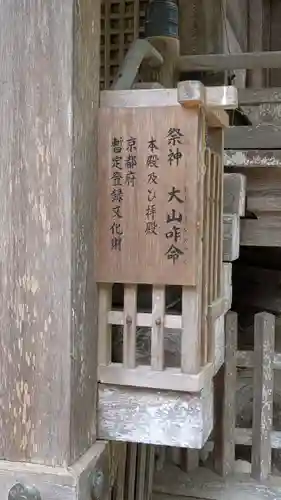 祭神 大山咋命
本殿及び拝殿
京都府
暫定登録文化財